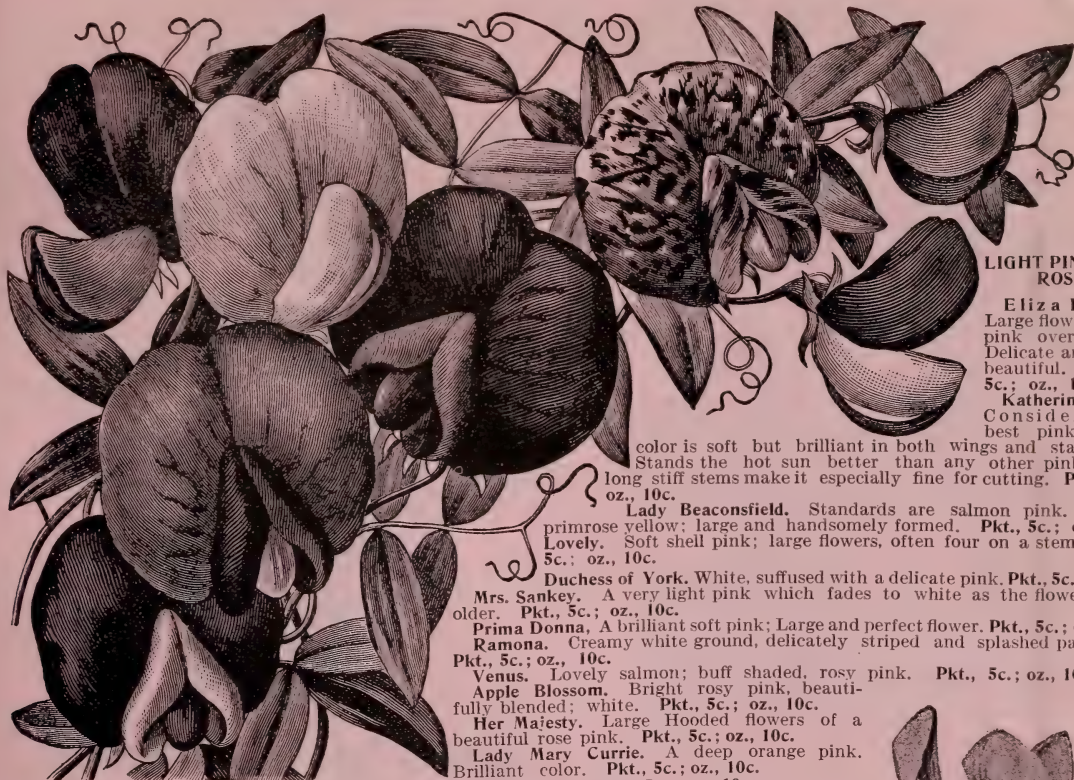 LIGHT PIN
ROS
Eliza
Large flow
pink over
Delicate an
beautiful.
5c.; oz.,
Katherin
Conside
best pink
color is soft but brilliant in both wings and sta
Stands the hot sun better than any other pin
long stiff stems make it especially fine for cutting. P
oz., 10c.
Lady Beaconsfield. Standards are salmon pink.
primrose yellow; large and handsomely formed. Pkt., 5c.;
Lovely. Soft shell pink; large flowers, often four on a stem
5c.; oz., 10c.
Duchess of York. White, suffused with a delicate pink. Pkt., 5c.
Mrs. Sankey. A very light pink which fades to white as the flowe
older. Pkt., 5c.; oz., 10c.
Prima Donna, A brilliant soft pink; Large and perfect flower. Pkt., 5c.;
Ramona. Creamy white ground, delicately striped and splashed pa
Pkt., 5c.; oz., 10c.
Venus. Lovely salmon; buff shaded, rosy pink. Pkt., 5c.; oz., 1
Apple Blossom. Bright rosy pink, beauti-
fully blended; white. Pkt., 5c.; oz., 10c.
Her Majesty. Large Hooded flowers of a
beautiful rose pink. Pkt., 5c.; oz., 10c.
Lady Mary Currie. A deep orange pink.
Brilliant color. Pkt., 5c.; oz., 10c.